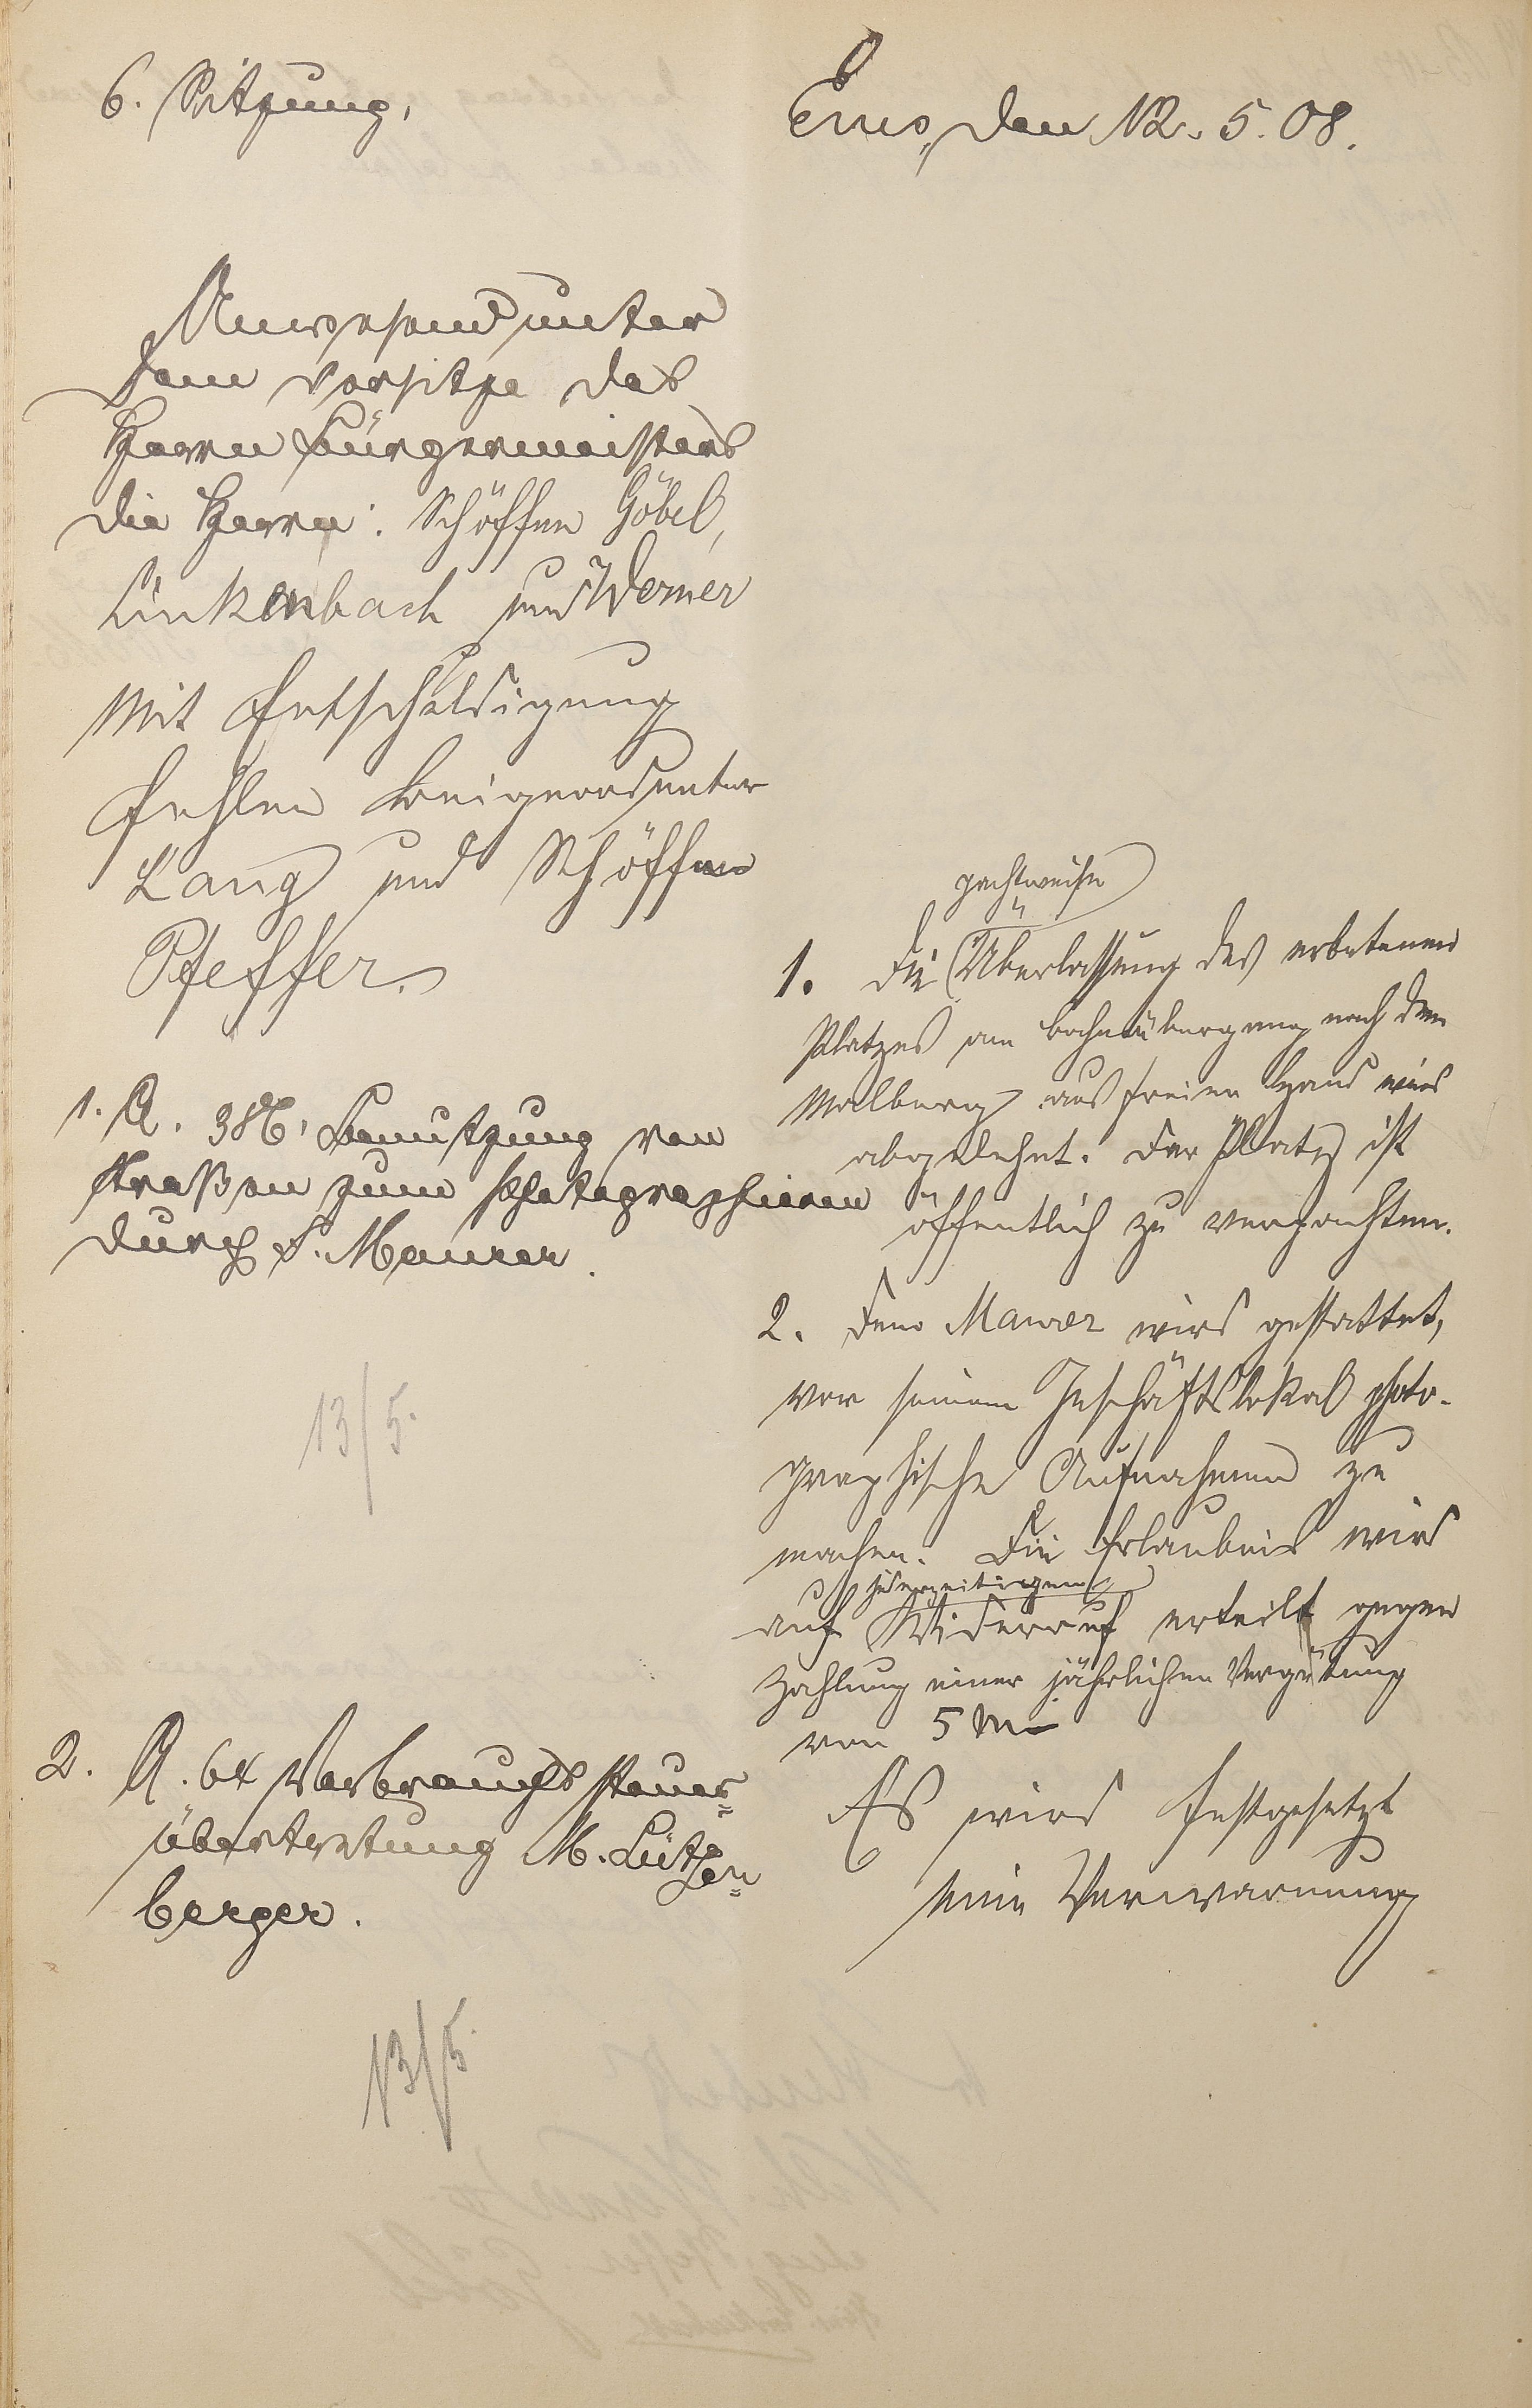 6. Sitzung.
Ems, den 12. 5. 08.
Anwesend unter
dem Vorsitze des
Herrn Bürgermeisters
die Herren: Schöffen Göbel,
Linkenbach und Werner
Mit Entschuldigung
fehlen Beigeordneter
Lang und Schöffen
Pfeffer.
1. A. 386, Benutzung von
Straßen zum Photographieren
durch F. Maurer.
13/5.
pachtweise
1. Die Überlassung des erbetenen
Platzes am Bahnübergang nach dem
Malberg aus freier Hand wird
abgelehnt. Der Platz ist
öffentlich zu verpachten.
2. Dem Maurer wird gestattet,
vor seinem Geschäftslokal photo-
graphische Aufnahmen zu
machen. Die Erlaubnis wird
jederzeitigen
auf Widerruf erteilt gegen
Zahlung einer jährlichen Vergütung
von 5 M
2. A. 64 Verbrauchssteuer-
übertretung M. Lützen-
berger.
13/5.
Es wird festgesetzt
eine Verwarnung